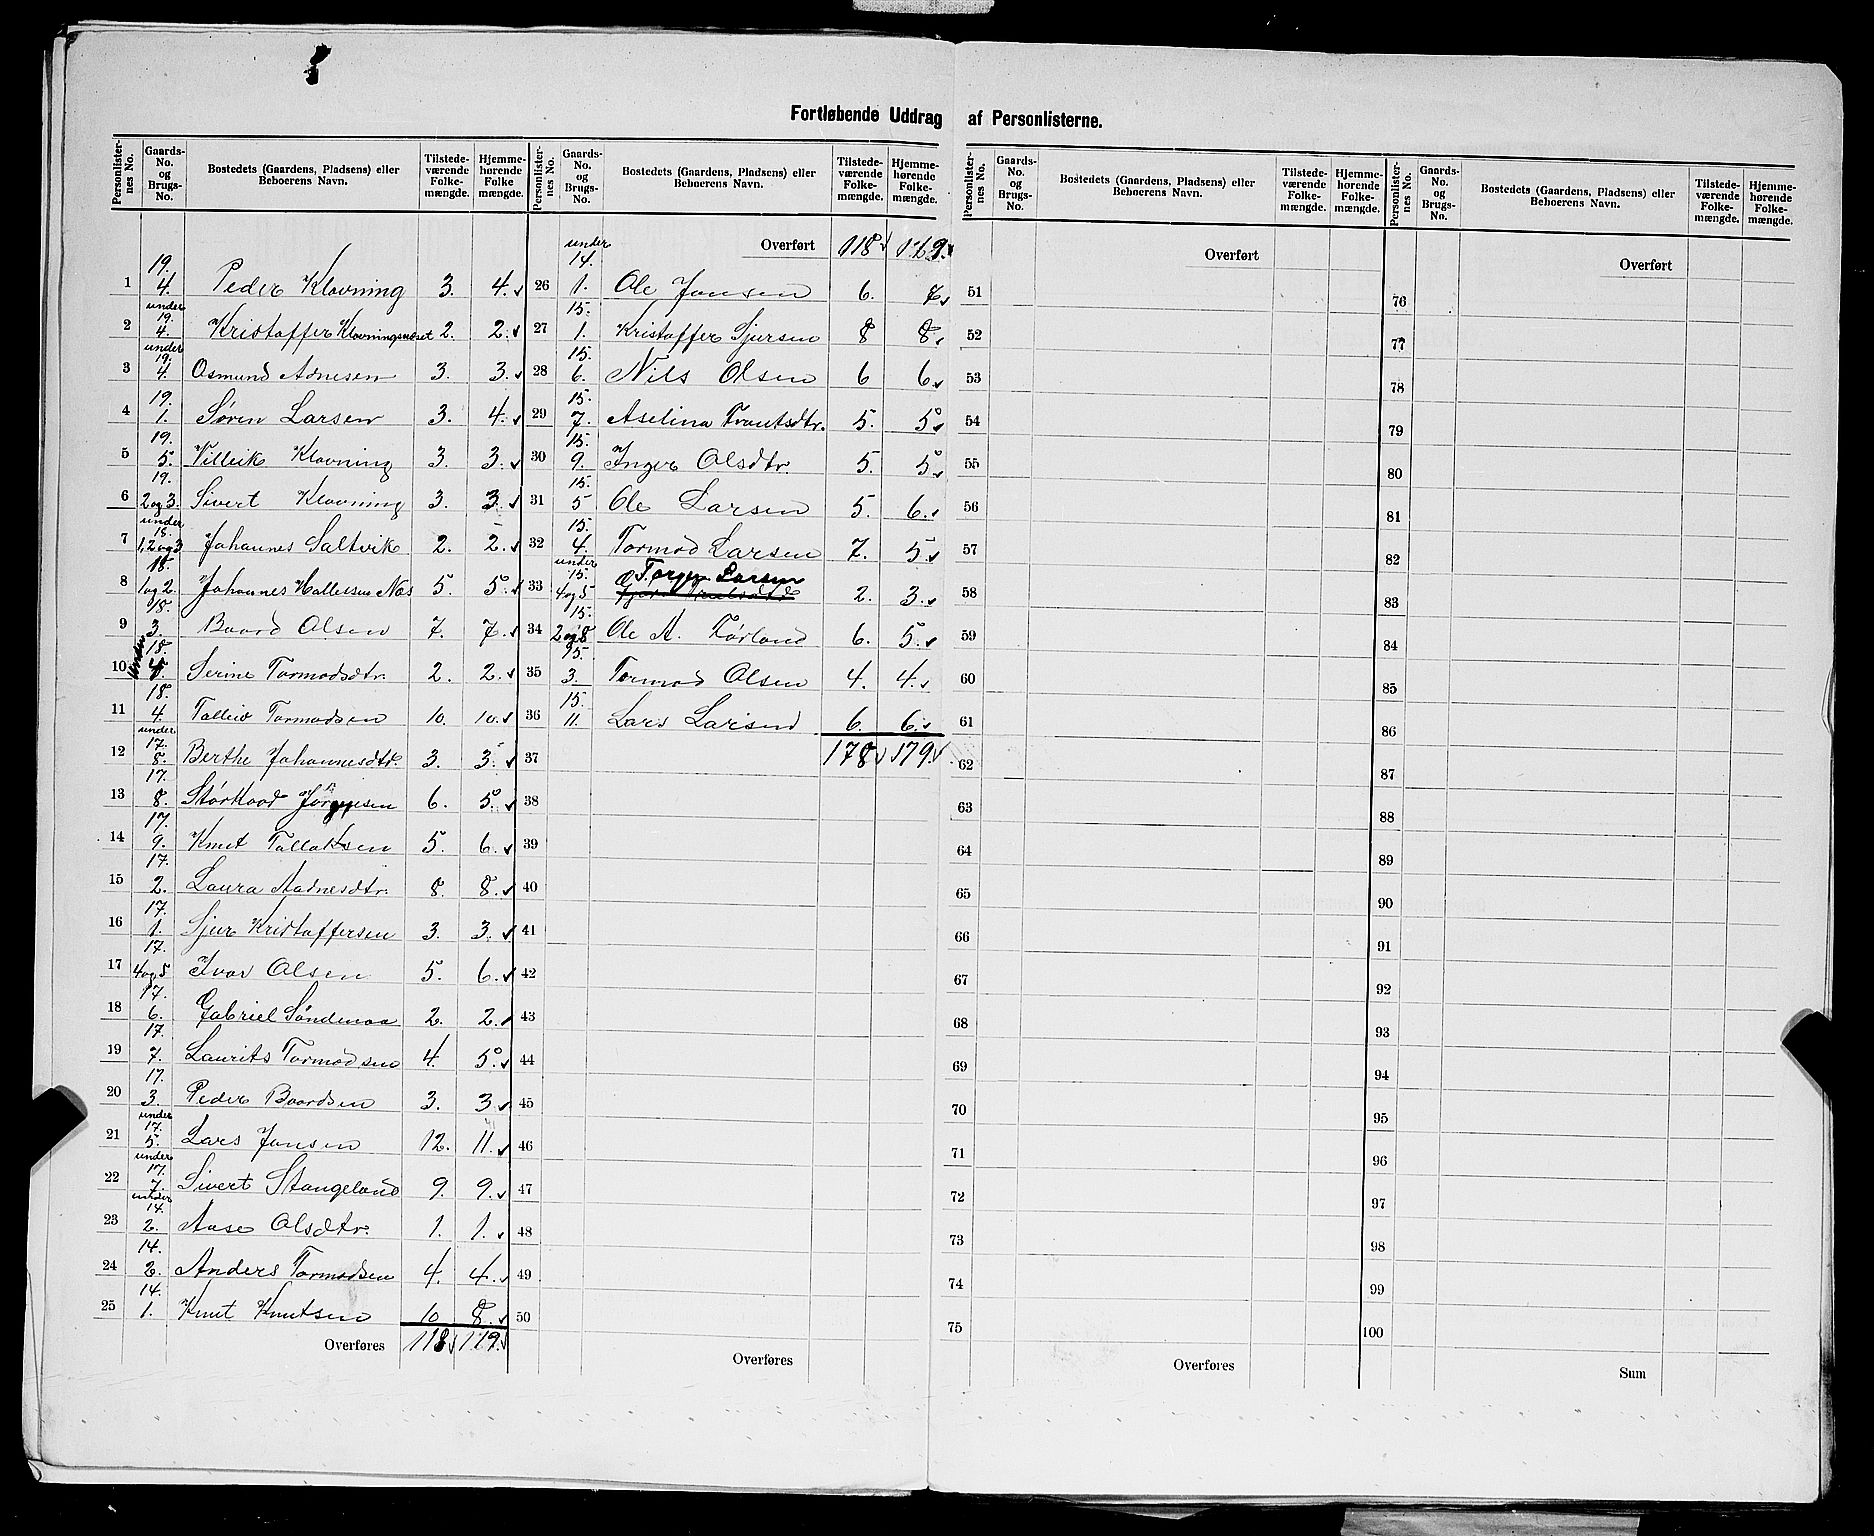 Fortløbende Uddrag af Personlisterne.
Personlister-nes No. | Gaards-No. og Brugs-No. | Bostedets (Gaardens, Pladsens) eller Beboerens Navn. | Tilstede-værende Folke-mængde. | Hjemme-hørende Folke mængde.
1 | 19. 4. | Peder Klovning | 3. | 4.
2 | under 19. 4. | Kristoffer Klovningsnæset | 2. | 2.
3 | under 19. 4. | Osmund Adnesen | 3. | 3.
4 | 19. 1. | Søren Larsen | 3. | 4.
5 | 19. 5. | Villeik Klovning | 3. | 3.
6 | 19. 2 og 3. | Sivert Klovning | 3. | 3.
7 | under 18. 1, 2 og 3 | Johannes Saltvik | 2. | 2.
8 | 18. 1 og 2. | Johannes Hallesen Næs | 5. | 5.
9 | 18. 3. | Baard Olsen | 7. | 7.
10 | under 18. 4. | Serine Tormodsdtr. | 2. | 2.
11 | 18. 4. | Talleiv Tormodsen | 10. | 10.
12 | under 17. 8. | Berthe Johannesdtr. | 3. | 3.
13 | 17. 8. | Størkaod Jørgensen | 6. | 5.
14 | 17. 9. | Knut Tallaksen | 5. | 6.
15 | 17. 2. | Laura Aadnesdtr. | 8. | 8.
16 | 17. 1. | Sjur Kristoffersen | 3. | 3.
17 | 17. 4 og 5 | Ivar Olsen | 5. | 6.
18 | 17. 6. | Gabriel Søndenaa | 2. | 2.
19 | 17. 7. | Laurits Tormodsen | 4. | 5.
20 | 17. 3. | Peder Baardsen | 3. | 3.
21 | under 17. 5. | Lars Jansen | 12. | 11.
22 | under 17. 7. | Sivert Stangeland | 9. | 9.
23 | under 14. 2. | Aase Olsdtr. | 1. | 1.
24 | 14. 2. | Anders Tormodsen | 4. | 4.
25 | 14. 1. | Knut Knutsen | 10 | 8.
Overføres | 118 | 119.
Personlister-nes No. | Gaards-No. og Brugs-No. | Bostedets (Gaardens, Pladsens) eller Beboerens Navn. | Tilstede-værende Folke-mængde. | Hjemme-hørende Folke-mængde.
Overført | 118 | 119.
26 | under 14. 1. | Ole Jansen | 6.
27 | 15. 1. | Kristoffer Sjursen | 8 | 8.
28 | 15. 6. | Nils Olsen | 6 | 6
29 | 15. 7. | Aselina Knutsdtr. | 5. | 5
30 | 15. 9. | Inger Olsdtr. | 5. | 5
31 | 15. 5 | Ole Larsen | 5. | 6.
32 | 15. 4. | Tormod Larsen | 7. | 5
33 | under 15. 4 og 5 | Torger Larsen | 2. | 3.
34 | 15. 2 og 8 | Ole A. Førland | 6. | 5.
35 | 15. 3. | Tormod Olsen | 4. | 4.
36 | 15. 11. | Lars Larsen | 6. | 6.
37 | 178 | 179.
38
39
40
41
42
43
44
45
46
47
48
49
50
Overføres
Personlister-nes No. | Gaards-No. og Brugs-No. | Bostedets (Gaardens, Pladsens) eller Beboerens Navn. | Tilstede-værende Folke-mængde. | Hjemme-hørende Folke-mængde.
Overført
51
52
53
54
55
56
57
58
59
60
61
62
63
64
65
66
67
68
69
70
71
72
73
74
75
Overføres
Personlister-nes No. | Gaards-No. og Brugs-No. | Bostedets (Gaardens, Pladsens) eller Beboerens Navn. | Tilstede-værende Folke-mængde. | Hjemme-hørende Folke-mængde.
Overført
76
77
78
79
80
81
82
83
84
85
86
87
88
89
90
91
92
93
94
95
96
97
98
99
100
Sum